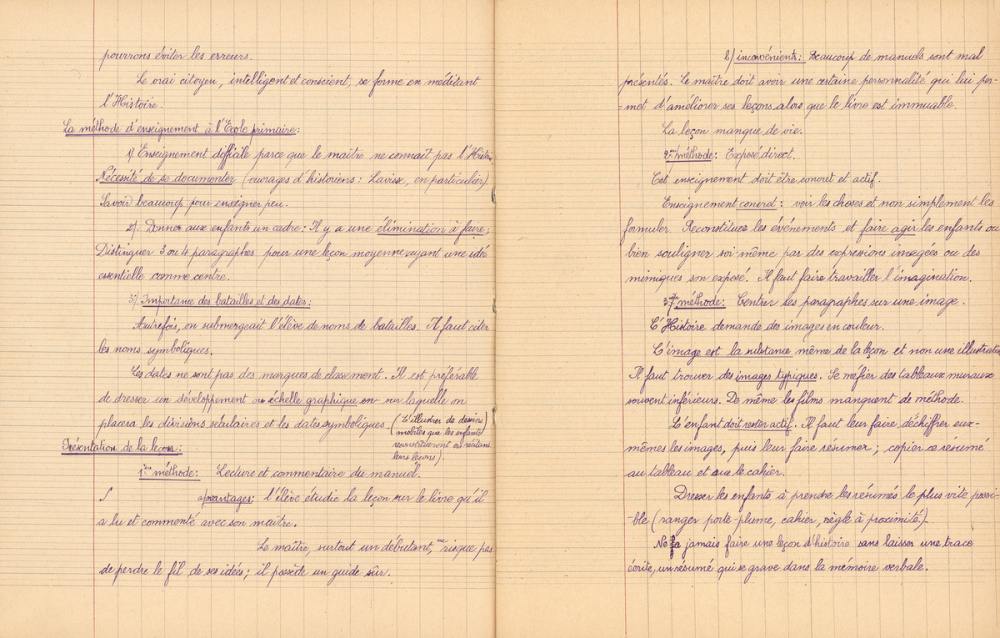 pourrons éviter les erreurs.
Le vrai citoyen, intelligent et conscient, se forme en méditant
l'Histoire.
La méthode d'enseignement à l'Ecole primaire:
1) Enseignement difficile parce que le maître ne connaît pas l'Histoire
Nécessité de se documenter (ouvrages d'historiens: Lavisse, en particulier).
Savoir beaucoup pour enseigner peu.
2). Donner aux enfants un cadre: Il y a une élimination à faire;
Distinguer 3 ou 4 paragraphes pour une leçon moyenne ayant une idée
essentielle comme centre.
3) Importance des batailles et des dates:
Autrefois, on submergeait l'élève de noms de batailles. Il faut citer
les noms symboliques.
Les dates ne sont pas des marques de classement. Il est préférable
de dresser un développement ou échelle graphique sur laquelle on
placera les divisions séculaires et les dates symboliques. (L'illustrer de dessins
mobiles que les enfants
reconstitueront en récitant
leurs leçons).
Présentation de la leçon:
1ère méthode: Lecture et commentaire du manuel.
avantages: l'élève étudie la leçon sur le livre qu'il
a lu et commenté avec son maître.
Le maître, surtout un débutant, ne risque pas
de perdre le fil de ses idées; il possède un guide sûr.
2/ inconvénients: Beaucoup de manuels sont mal
présentés. Le maître doit avoir une certaine personnalité qui lui per-
-met d'améliorer ses leçons alors que le livre est immuable.
La leçon manque de vie.
2ème méthode: Exposé direct.
Cet enseignement doit être concret et actif.
Enseignement concret: voir les choses et non simplement les
formuler. Reconstituer les événements et faire agir les enfants ou
bien souligner soi-même par des expressions imagées ou des
mimiques son exposé. Il faut faire travailler l'imagination.
3ème méthode: Centrer les paragraphes sur une image.
L'Histoire demande des images en couleur.
L'image est la substance même de la leçon et non une illustration
Il faut trouver des images typiques. Se méfier des tableaux muraux
souvent inférieurs. De même les films manquent de méthode.
L'enfant doit rester actif. Il faut leur faire déchiffrer eux-
mêmes les images, puis leur faire résumer; copier ce résumé
au tableau et sur le cahier.
Dresser les enfants à prendre les résumés le plus vite possi-
-ble (ranger porte-plume, cahier, règle à proximité).
Ne jamais faire une leçon d'histoire sans laisser une trace
écrite, un résumé qui se grave dans la mémoire verbale.